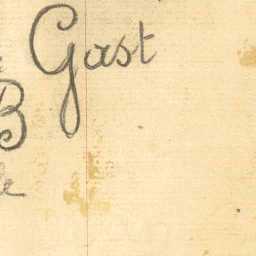 Gast
B
le